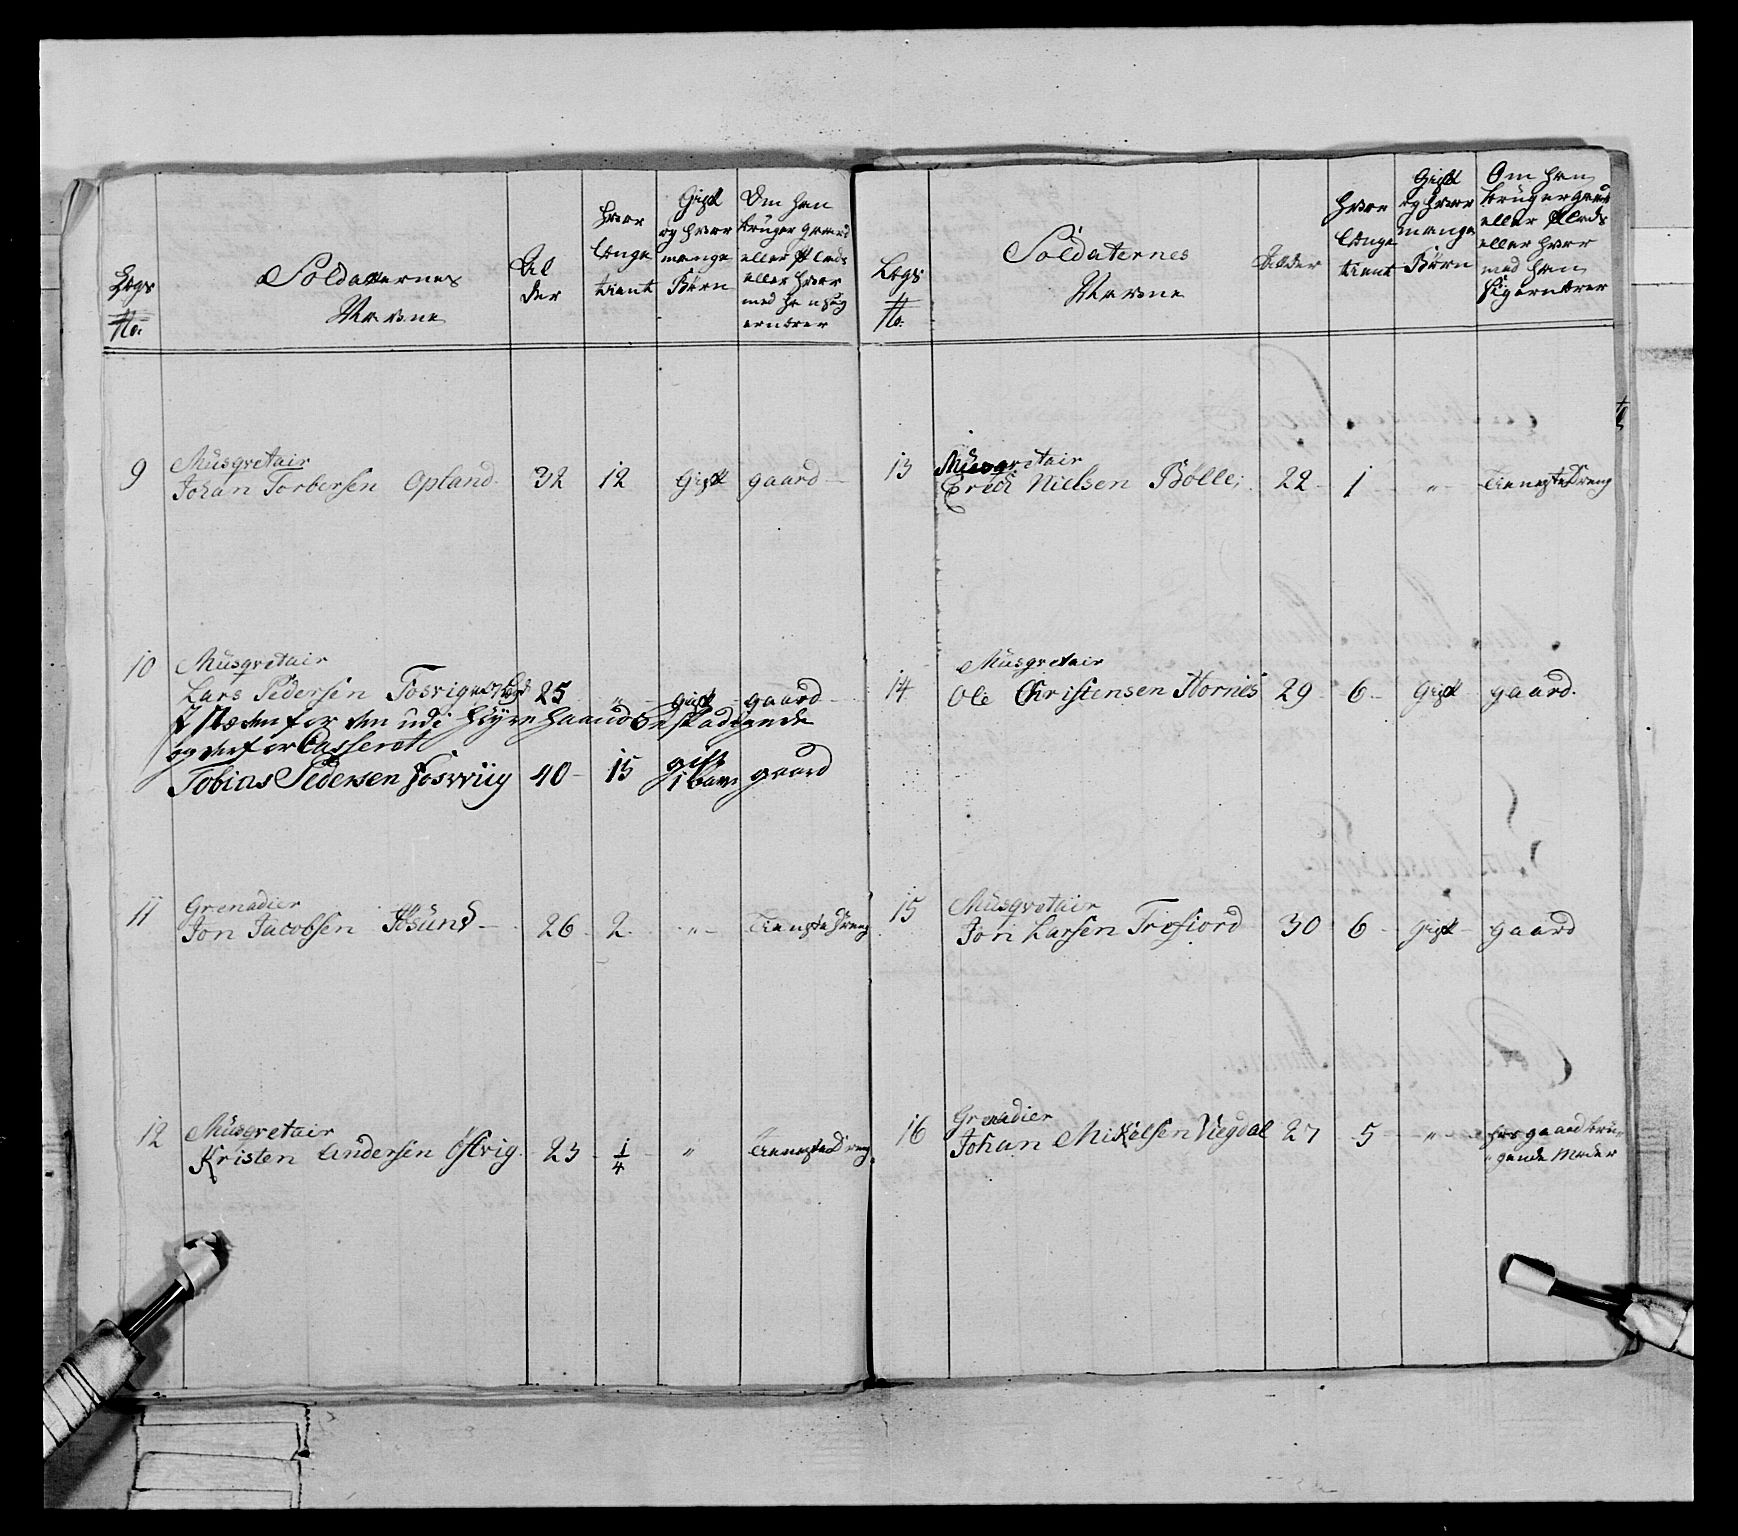 Legs No.
Soldaternes Navne
Alder
Hvor længe tient
Gift og hvor mange Børn
Om han bruger gaard eller Plads eller hvor med han sig ernærer
9 Musqvetair
Johan Torbersen Opland 32 12 Gift gaard
10 Musqvetair
Lars Pedersen Fosvig 25 " gift gaard
I Stæden for den udi høyre haand Beskadigende
og derfor Casserede
Tobias Pedersen Fosvig 40 15 gift 1 barn gaard
11 Grenadier
Jon Jacobsen 26 2 " Tieneste Dreng
12 Musqvetair
Kristen Andersen Østvig 23 1/4 " Tieneste Dreng
Legs No.
Soldaternes Navne
Alder
Hvor længe tient
Gift og hvor mange Børn
Om han bruger gaard eller Plads eller hvor med han sig ernærer
13 Musqvetair
Erich Nielsen Bølle 22 1 " Tieneste Dreng
14 Musqvetair
Ole Christensen Hornes 29 6 Gift gaard
15 Musqvetair
Jon Larsen Trefiord 30 6 gift gaard
16 Grenadier
Johan Mikelsen Vegdal 27 5 " hos gaard brü-
gende Moder